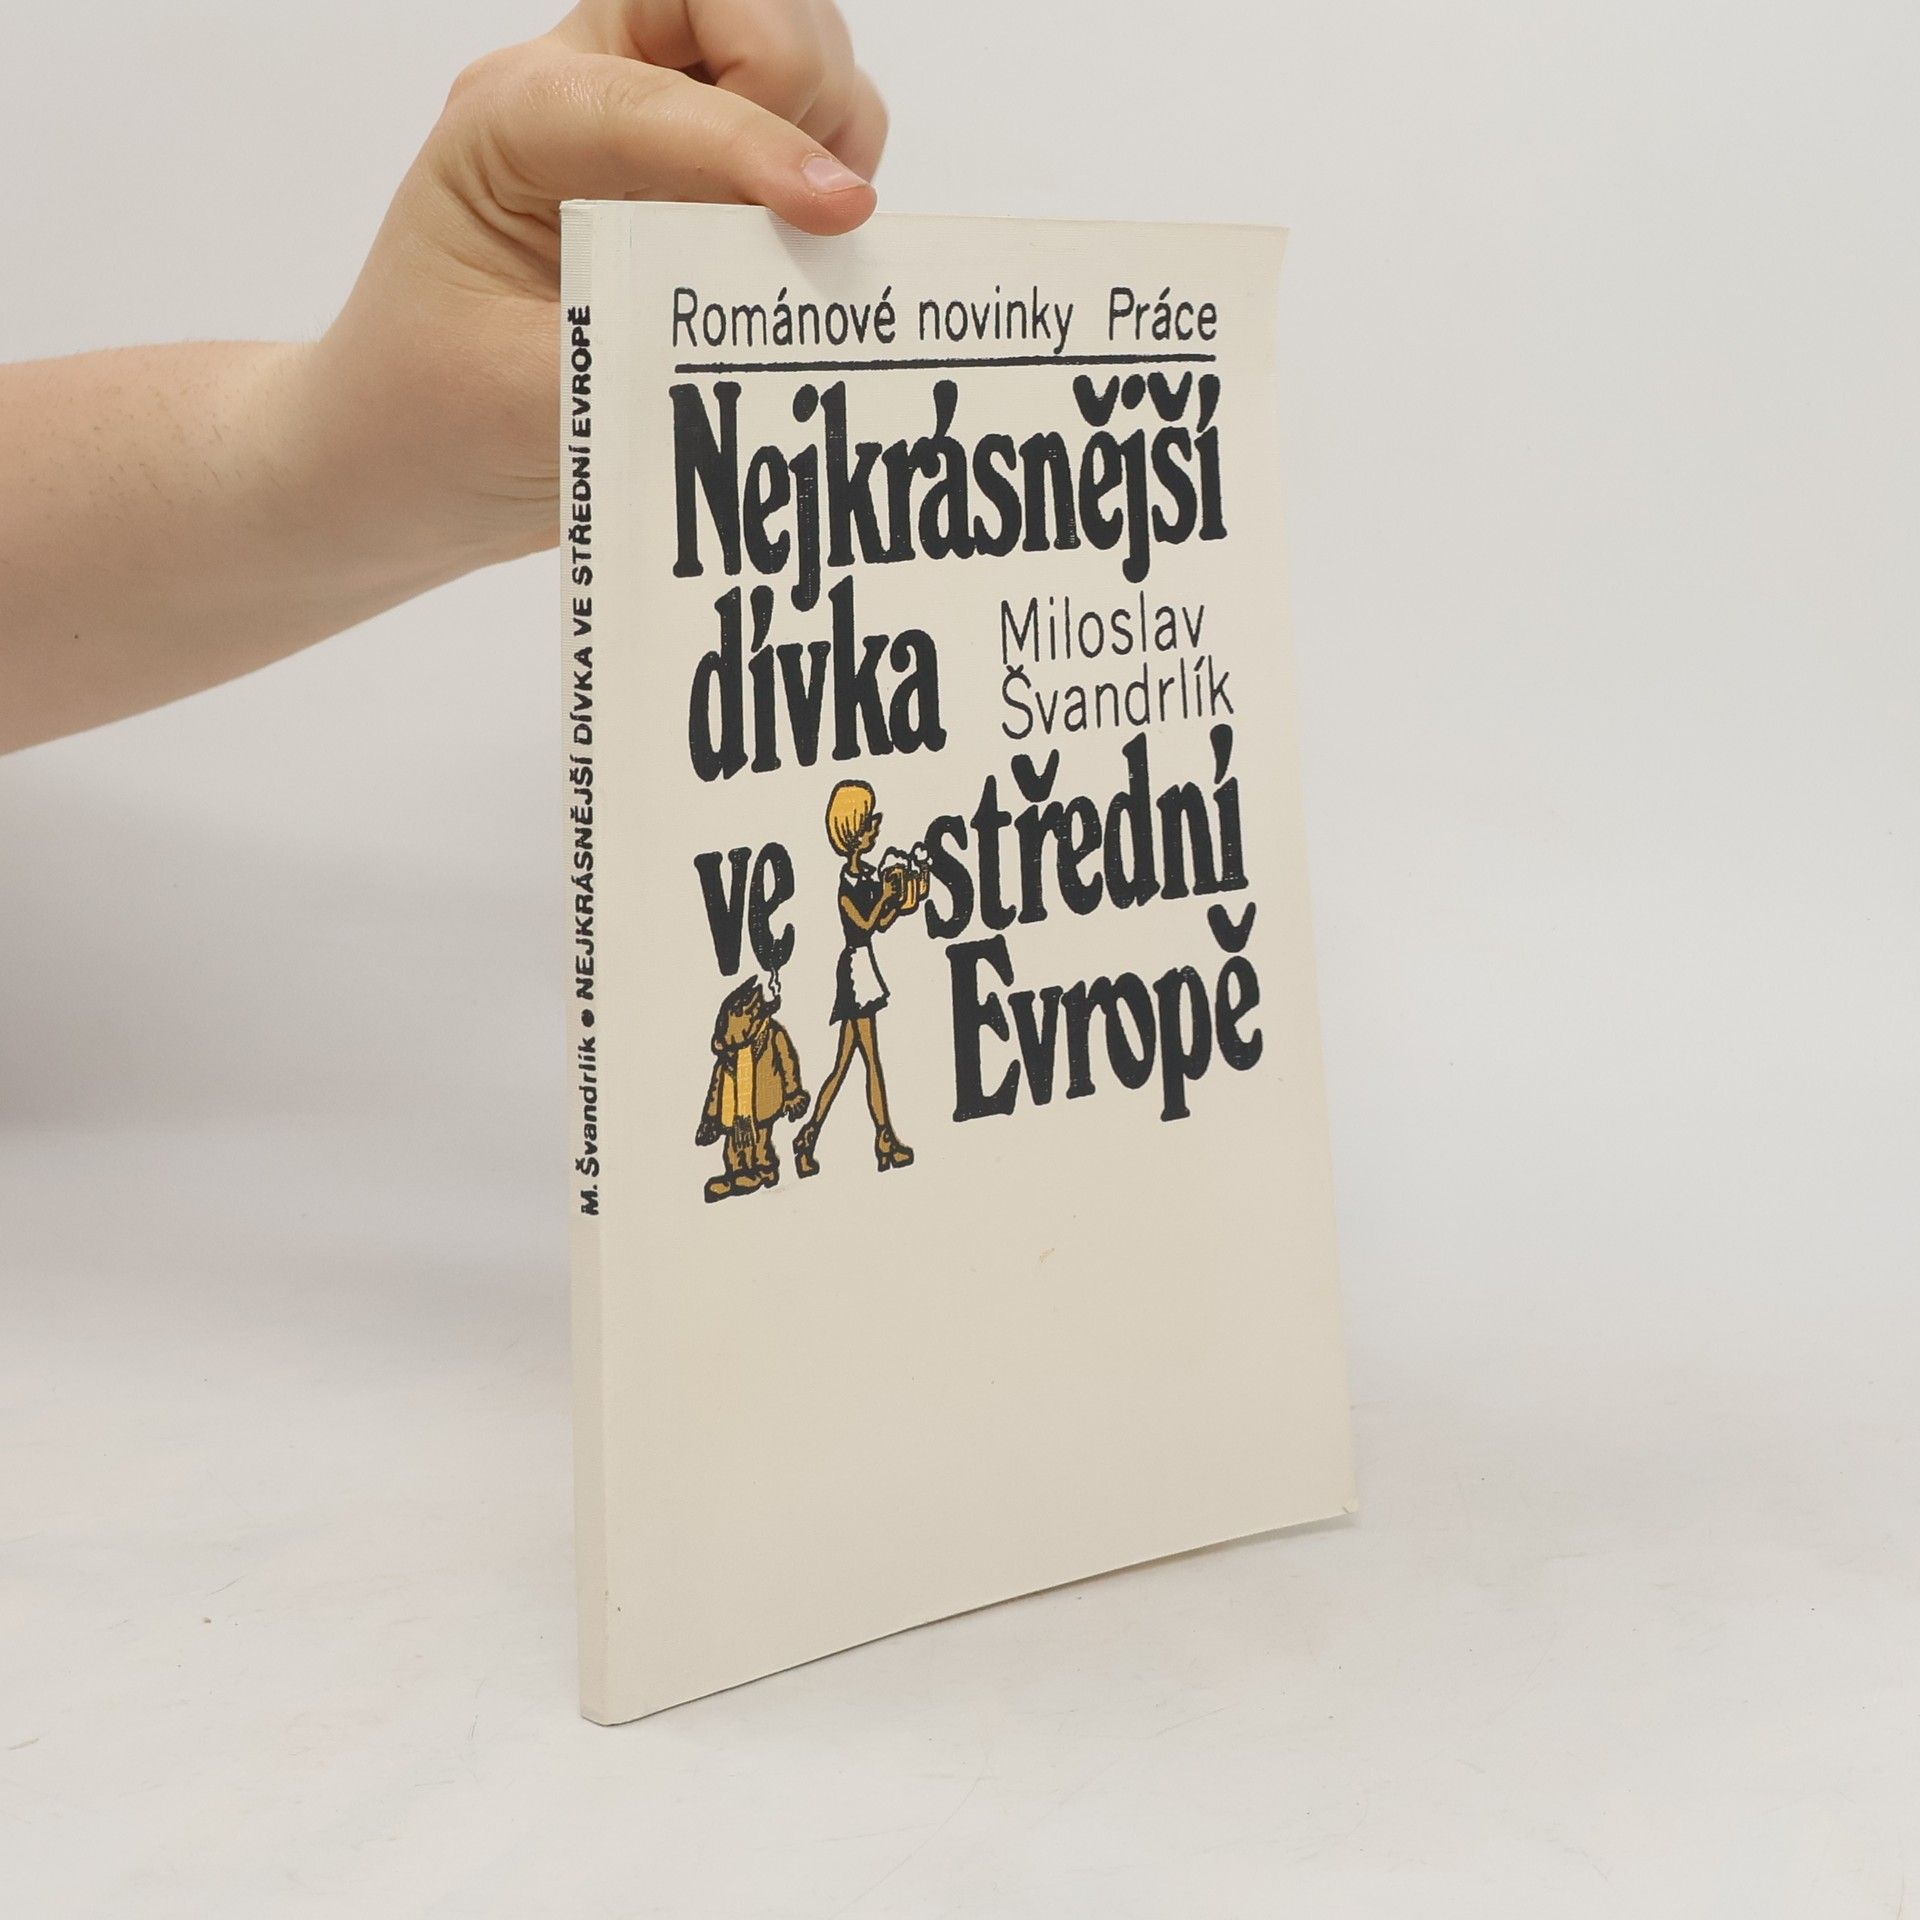 M. Švandrlík • NEJKRÁSNĚJŠÍ DÍVKA VE STŘEDNÍ EVROPĚ
Románové novinky Práce
Nejkrásnější
dívka
Miloslav
Švandrlík
ve střední
Evropě